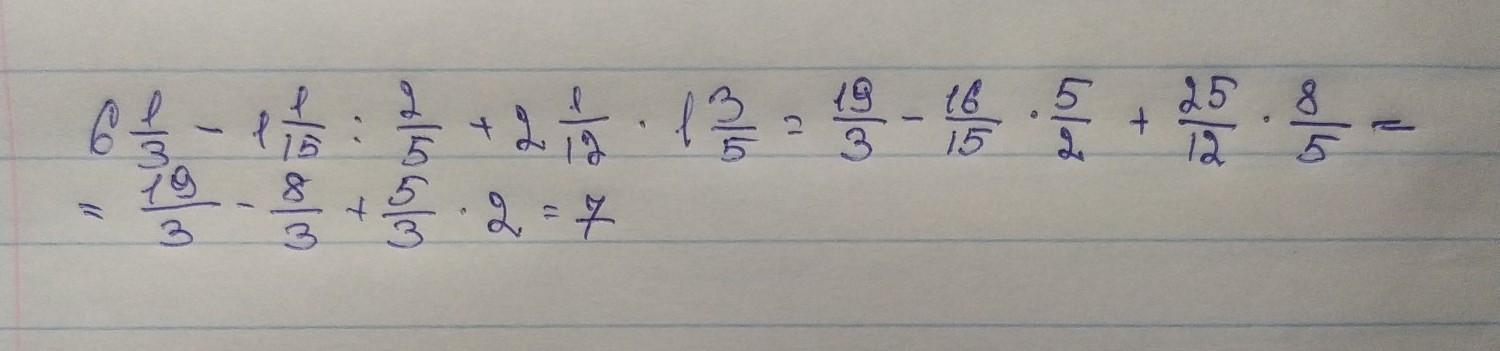 6 1/3 - 1 1/15 : 2/5 + 2 1/12 · 1 3/5 = 19/3 - 16/15 · 5/2 + 25/12 · 8/5 =
= 19/3 - 8/3 + 5/3 · 2 = 7